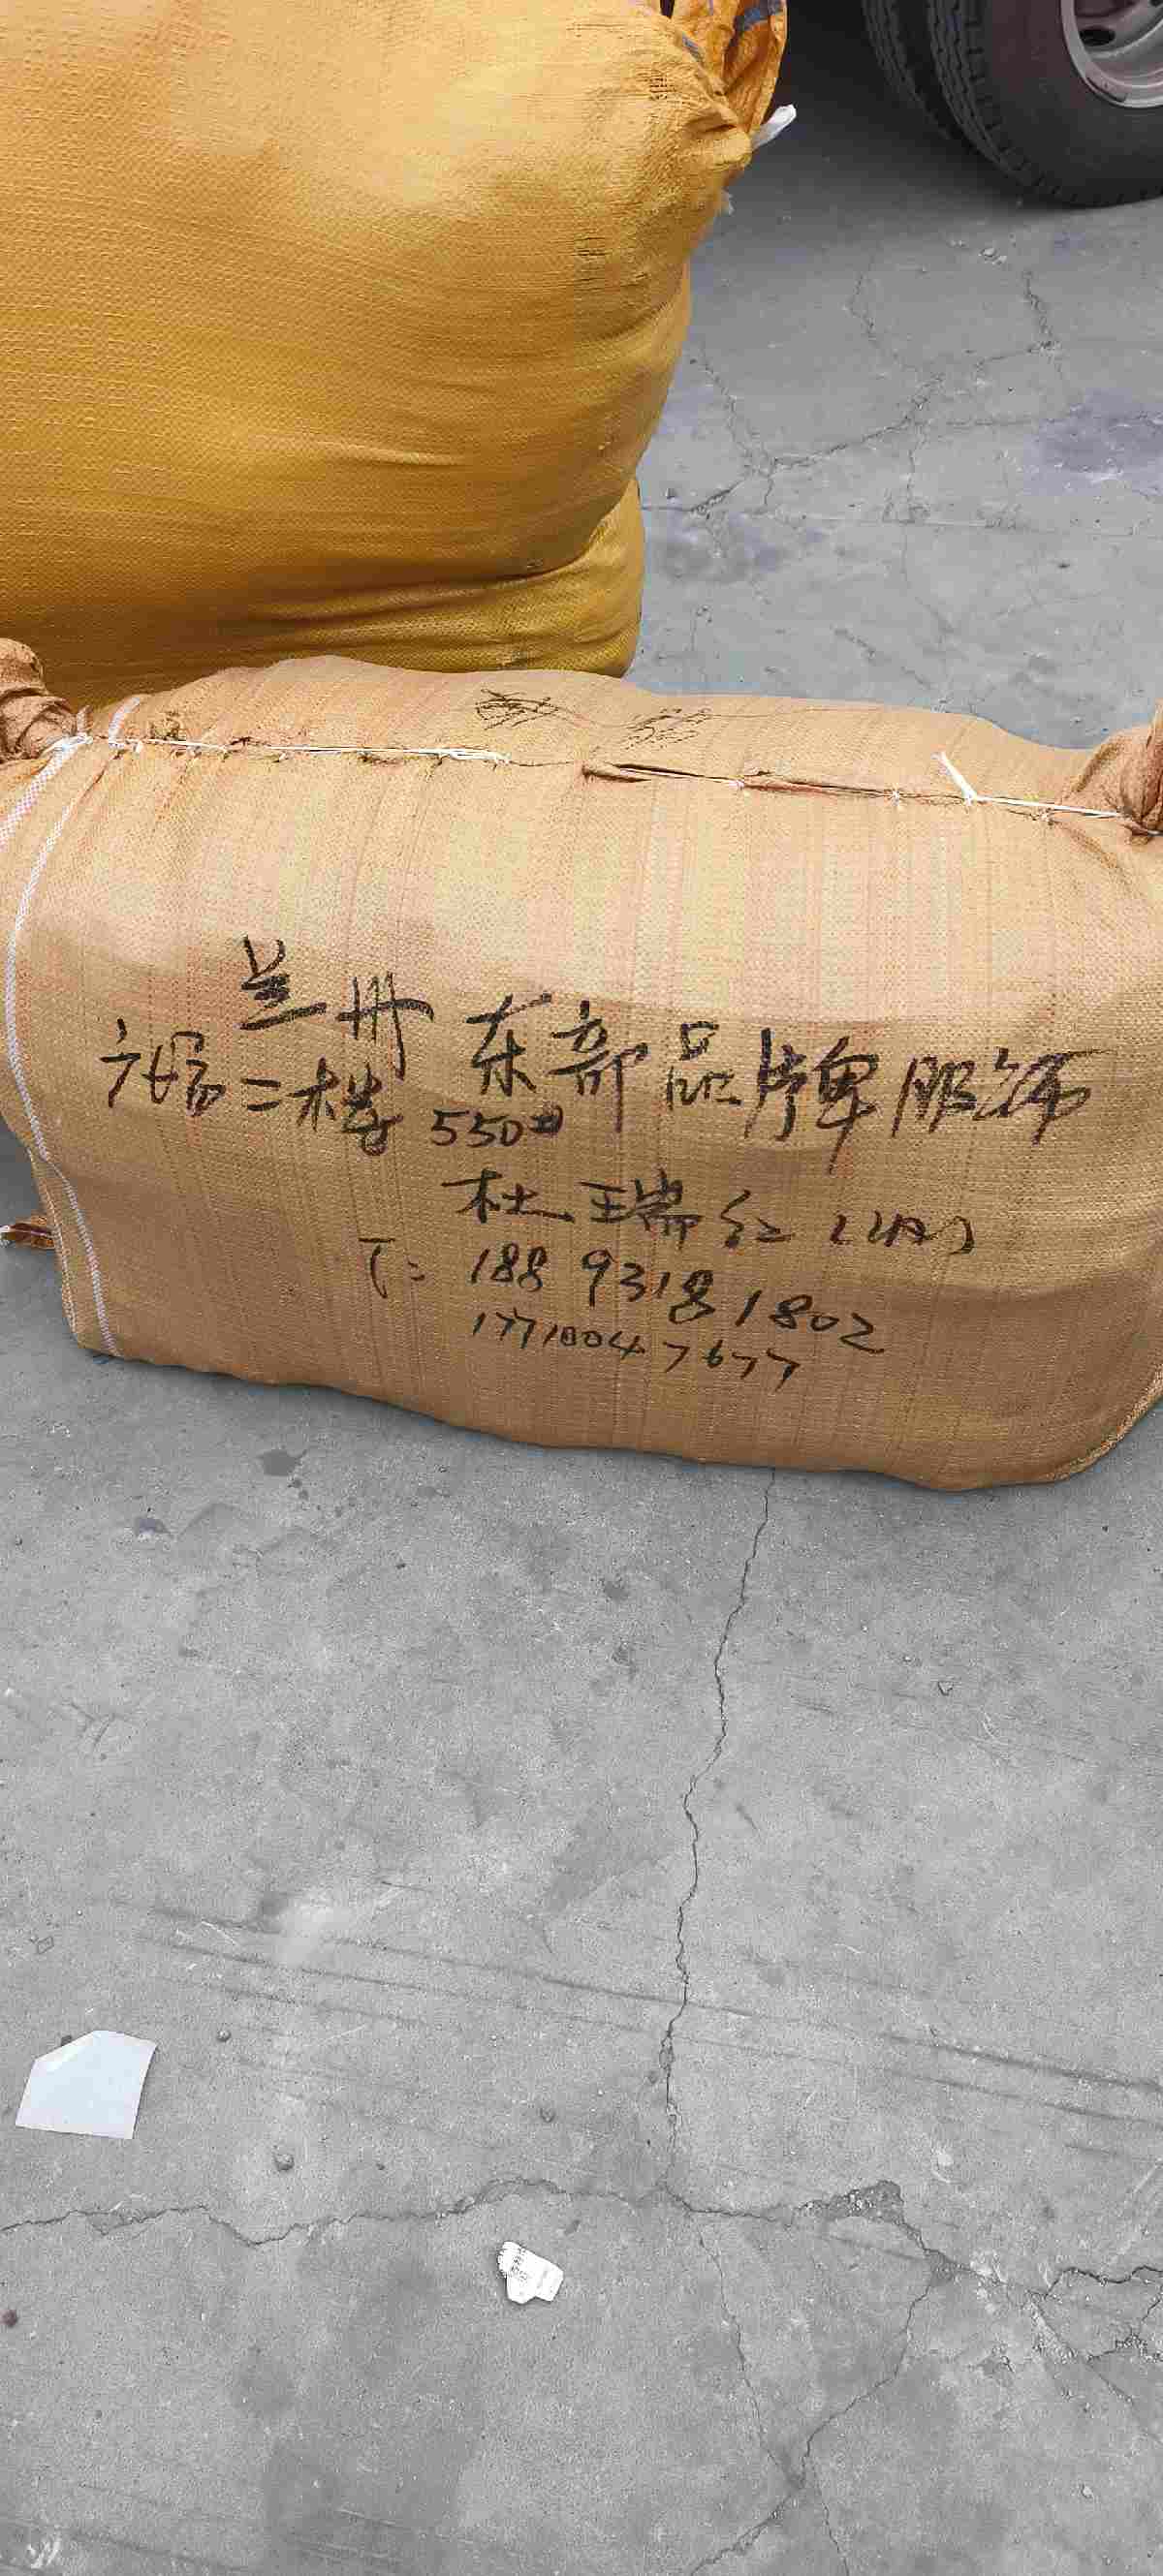 兰州 东部品牌服饰
广场二楼 550号
杜瑞红
T: 188 9318 1802
17710047677